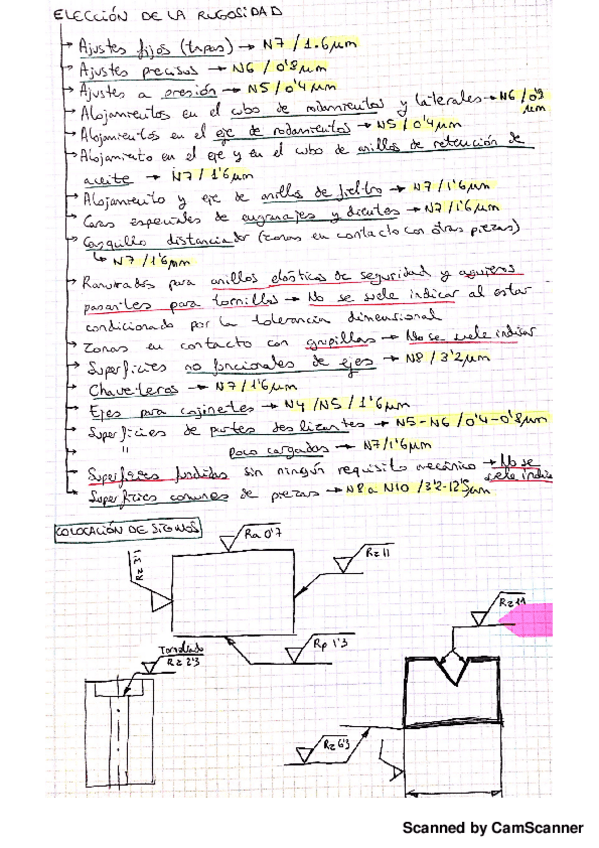 ELECCIÓN DE LA RUGOSIDAD
→ Ajustes fijos (tapas) → N7 / 1.6 μm
→ Ajustes precisos → N6 / 0'8 μm
→ Ajustes a presión → N5 / 0'4 μm
→ Alojamientos en el cubo de rodamientos y laterales → N6 / 0'8 μm
→ Alojamientos en el eje de rodamientos → N5 / 0'4 μm
→ Alojamiento en el eje y en el cubo de anillos de retención de
aceite → N7 / 1'6 μm
→ Alojamiento y eje de anillos de fieltro → N7 / 1'6 μm
→ Caras especiales de engranajes y dientes → N7 / 1'6 μm
→ Casquillo distanciador (zonas en contacto con otras piezas)
↳ N7 / 1'6 μm
→ Ranurados para anillos elásticos de seguridad y agujeros
pasantes para tornillos → No se suele indicar al estar
condicionado por la tolerancia dimensional
→ Zonas en contacto con grupillas → No se suele indicar
→ Superficies no funcionales de ejes → N8 / 3'2 μm
→ Chaveteros → N7 / 1'6 μm
→ Ejes para cojinetes → N4 / N5 / 1'6 μm
→ Superficies de partes deslizantes → N5-N6 / 0'4-0'8 μm
→ " poco cargadas → N7 / 1'6 μm
→ Superficies fundidas sin ningún requisito mecánico → No se suele indicar
→ Superficies comunes de piezas → N8 a N10 / 3'2-12'5 μm
COLOCACIÓN DE SIGNOS
Ra 0'7
Rz 3'1
Rz 11
Rp 1'3
Rz 11
Torneado
Rz 2'3
Rz 6'3
Scanned by CamScanner